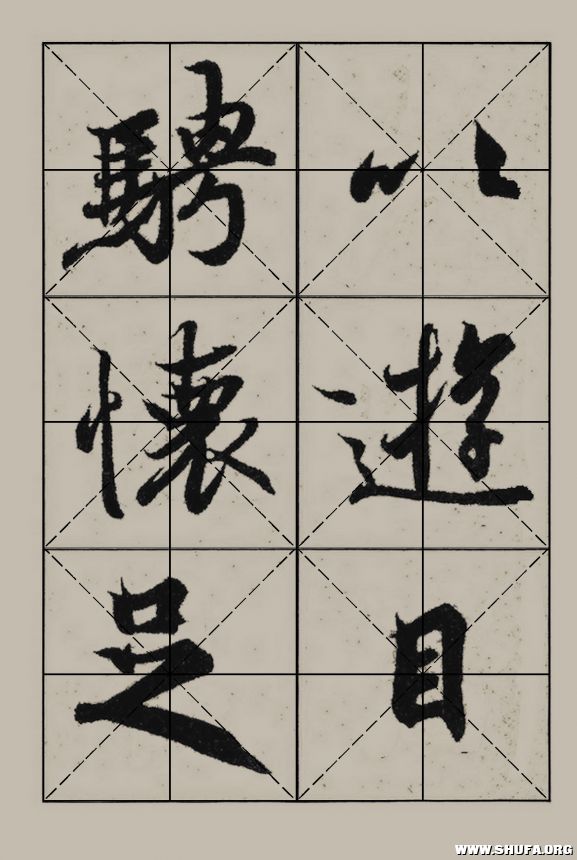 以遊目
騁懷足
WWW.SHUFA.ORG